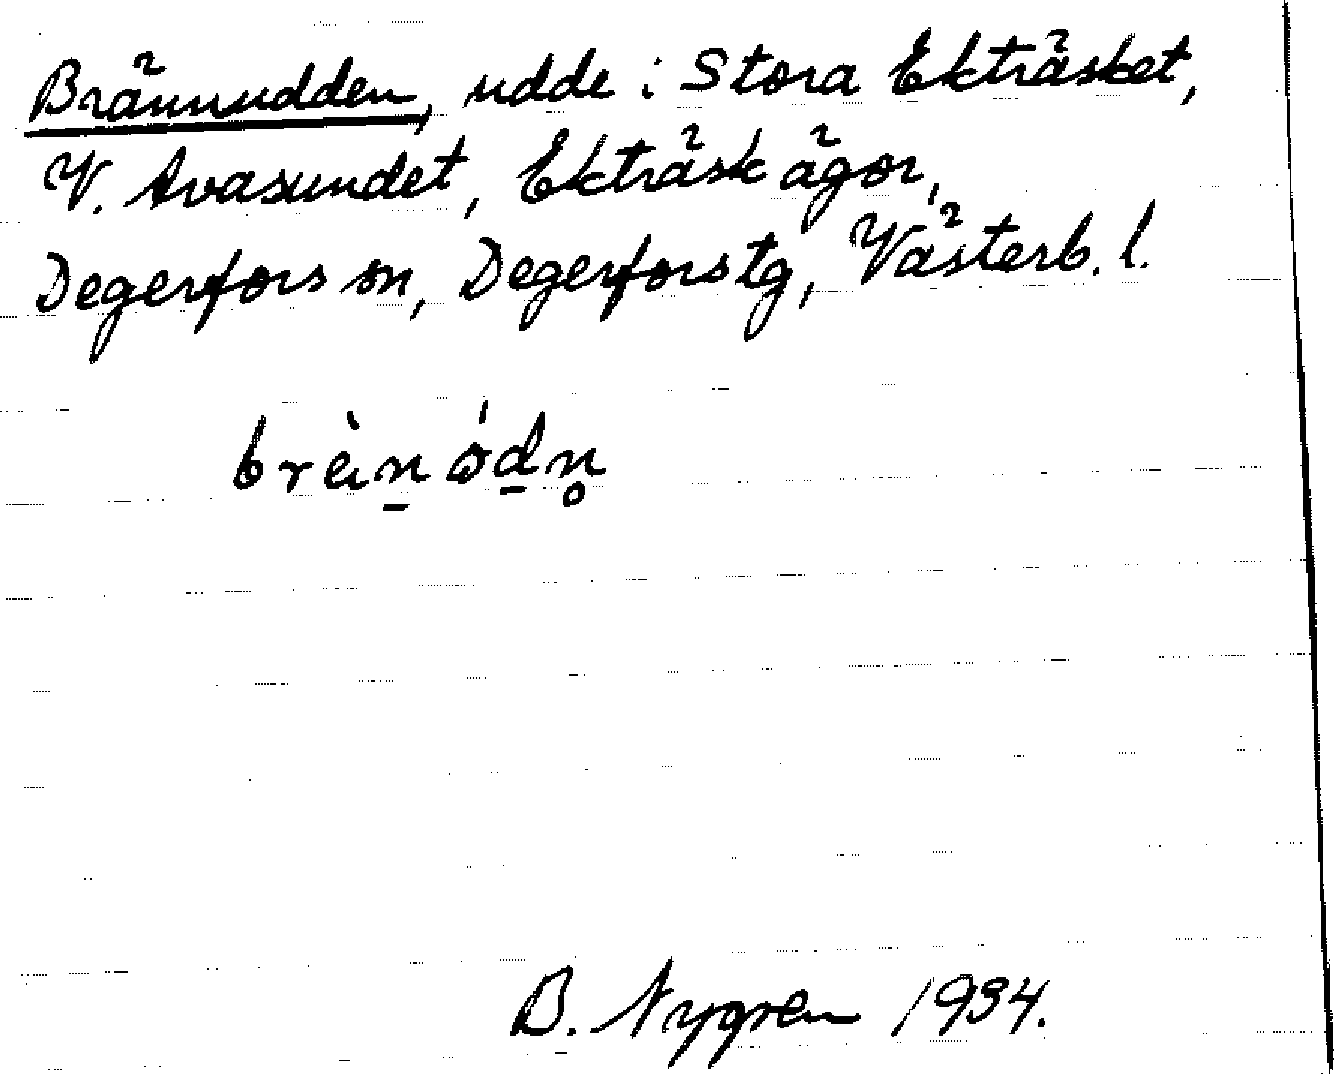 Brännudden, udde i Stora Ekträsket,
V. Avasundet, Ekträsk ägor,
Degerfors sn, Degerfors tg, Västerb. l.
brèn̠ ód̠n̥
B. Nygren 1934.